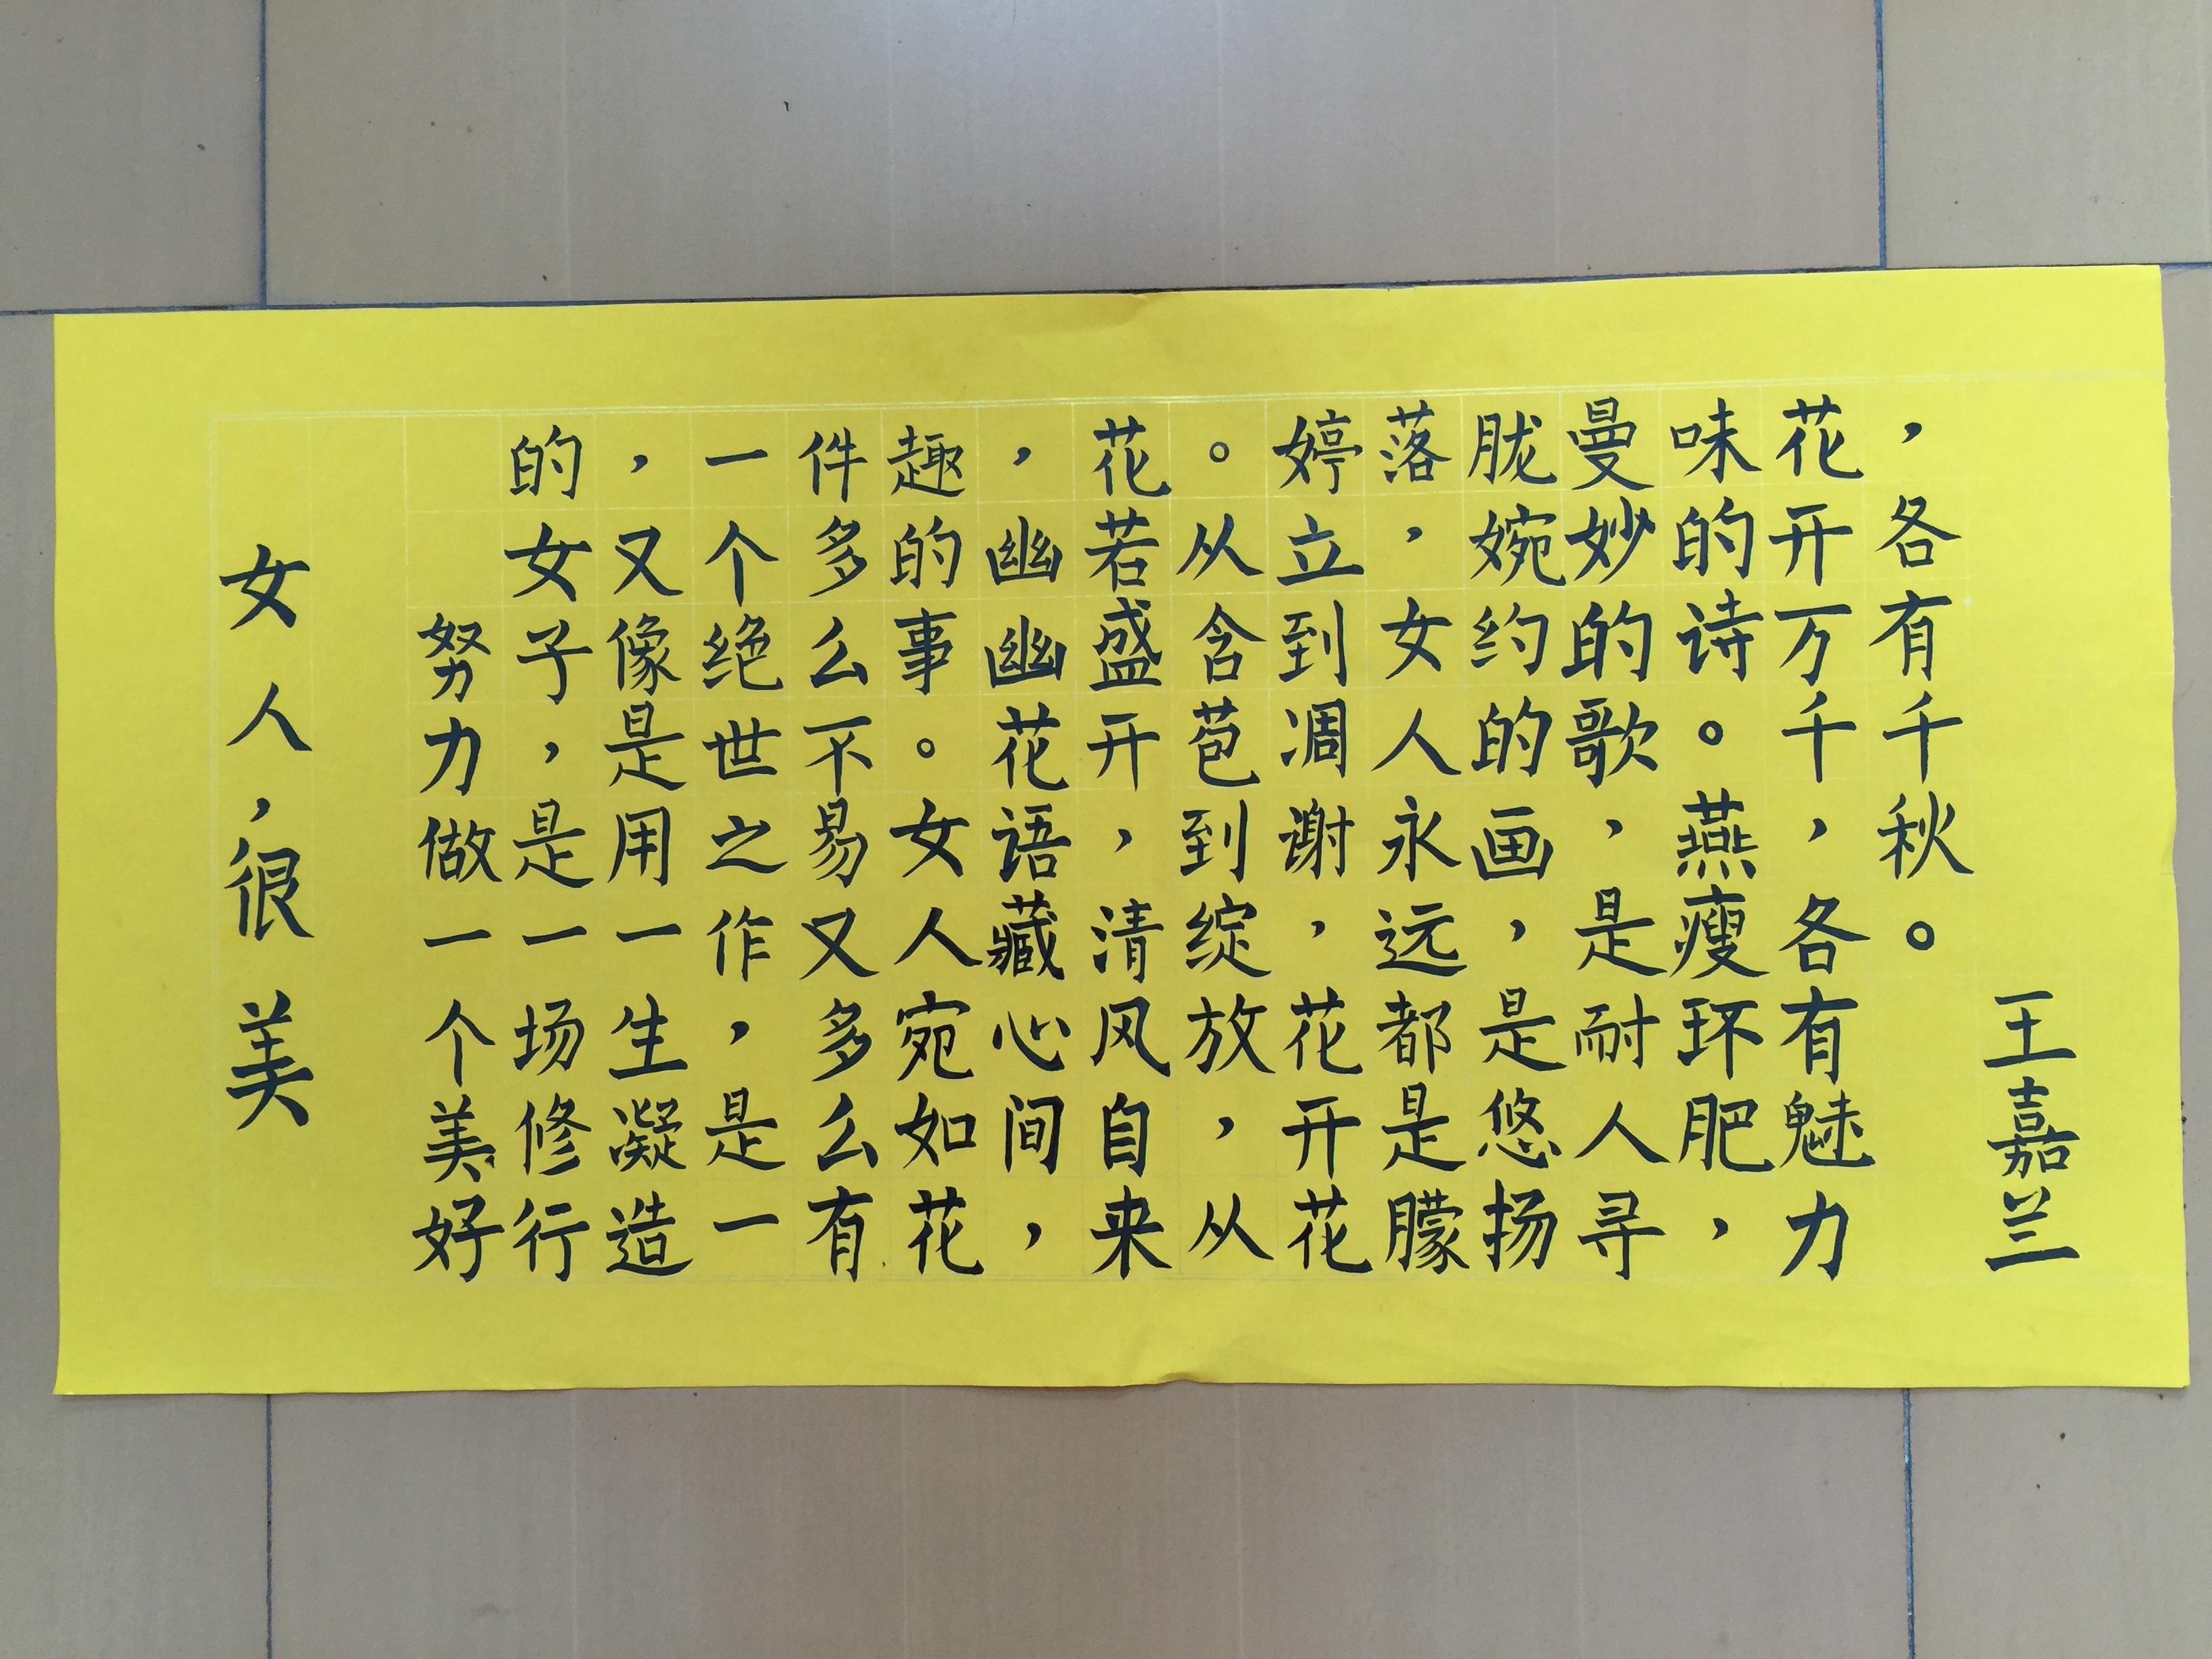 女人，很美
努力做一个美好
的女子，是一场修行
，又像是用一生凝造
一个绝世之作，是一
件多么不易又多么有
趣的事。女人宛如花
，幽幽花语藏心间，
花若盛开，清风自来
。从含苞到绽放，从
婷立到凋谢，花开花
落，女人永远都是朦
胧婉约的画，是悠扬
曼妙的歌，是耐人寻
味的诗。燕瘦环肥，
花开万千，各有魅力
，各有千秋。
王嘉兰